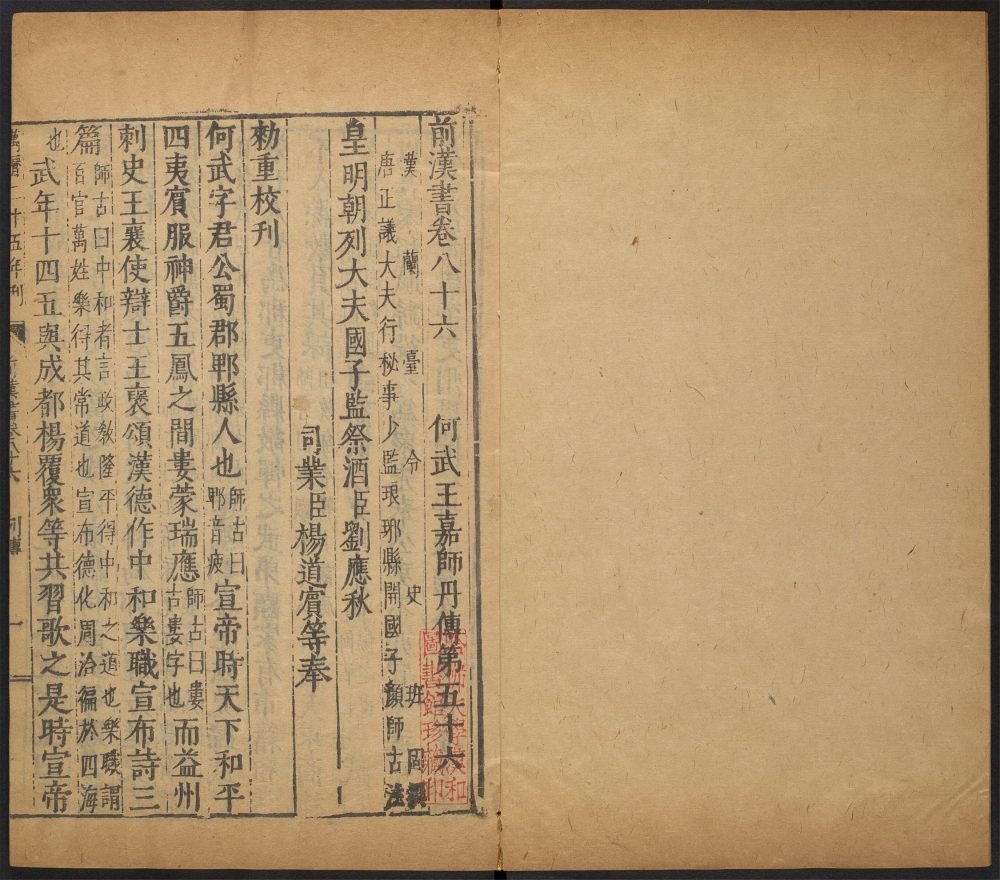 前漢書卷八十六 何武王嘉師丹傳第五十六
漢蘭臺令史班固撰
唐正議大夫行秘書少監琅邪縣開國子顏師古注
皇明朝列大夫國子監祭酒臣劉應秋
司業臣楊道賓等奉
勑重校刊
何武字君公蜀郡郫縣人也師古曰郫音疲宣帝時天下和平
四夷賔服神爵五鳳之間婁蒙瑞應師古曰婁古屢字也而益州
刺史王襄使辯士王襃頌漢德作中和樂職宣布詩三
篇師古曰中和者言政敎隆平得中和之道也樂職謂百官萬姓樂得其常道也宣布德化周洽徧於四海
也武年十四五與成都楊覆衆等共習歌之是時宣帝
萬曆二十五年刊 前漢書卷八十六 列傳 一
哈佛大學漢和圖書館珍藏印